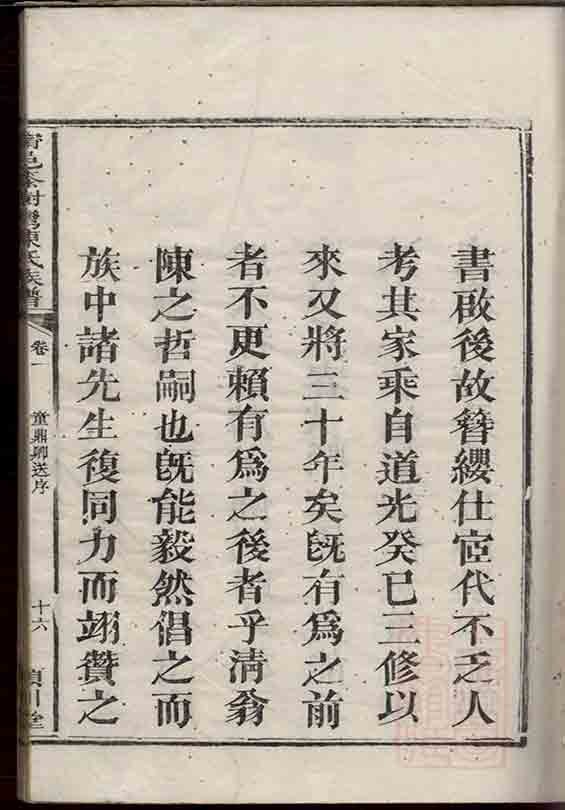 書啟後故簪纓仕宦代不乏人
考其家乘自道光癸巳三修以
來又將三十年矣旣有爲之前
者不更賴有爲之後者乎淸翁
陳之哲嗣也旣能毅然倡之而
族中諸先生復同力而翊贊之
邑茶樹灣陳氏族譜
卷一
童鼎卿送序
十六
川堂